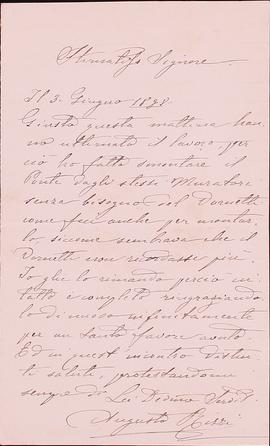 Stimatis Signore.
Il 3. Giugno 1898.
Giusto questa mattina han
no ultimato il lavoro per
ciò ho fatto smontare il
Ponte dagli stessi Muratori
senza bisogno del
come feci anche per montar
lo, siccome sembrava che il
non più
Io glie lo rimando perciò in
tatto e completo ringrazian
lo di nuovo infinitamente
per un tanto favore avuto
Ed in quest incontro Distin
ti saluti, protestandomi
sempre di Lei Devmo
Augusto Rizzi